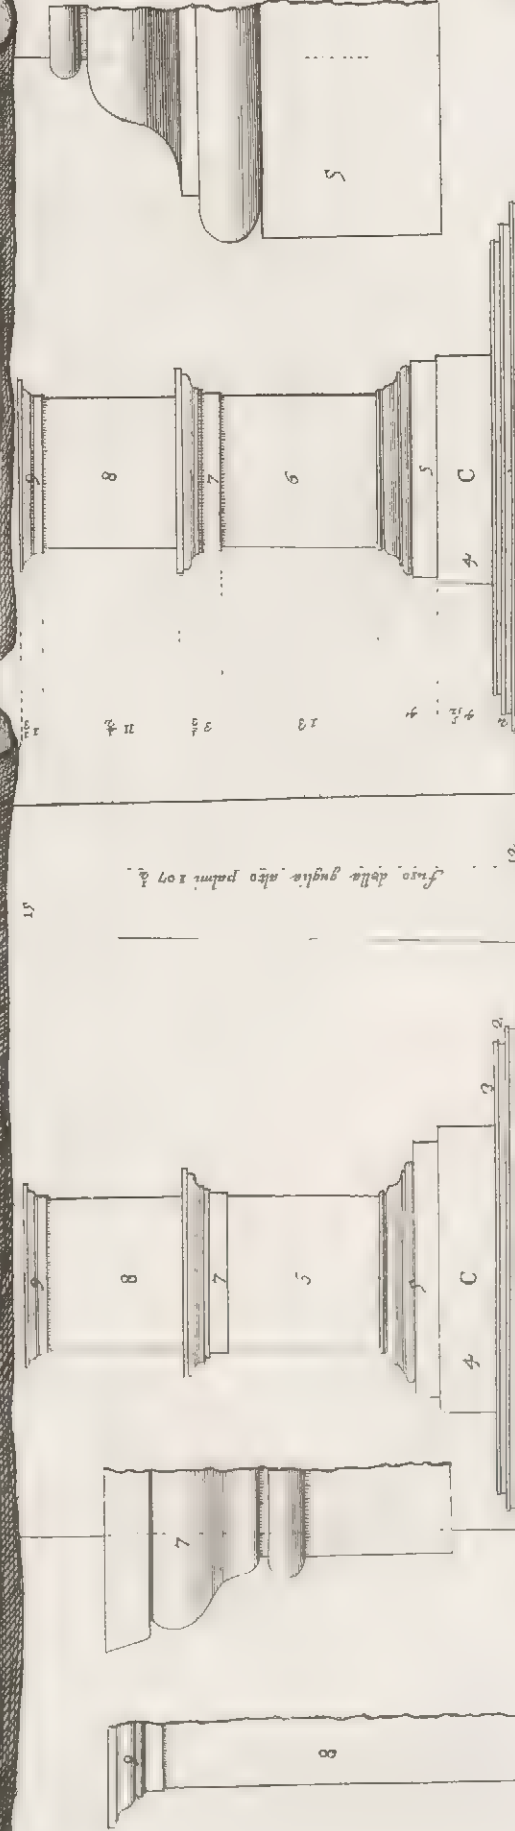 5
9 8 7 6 5 C
4
11 3 ½ 13 4 4 5/12 2
fuso della guglia alto palmi 107 ½
15
2
3
9 8 7 5 5 C
4
7
9 8